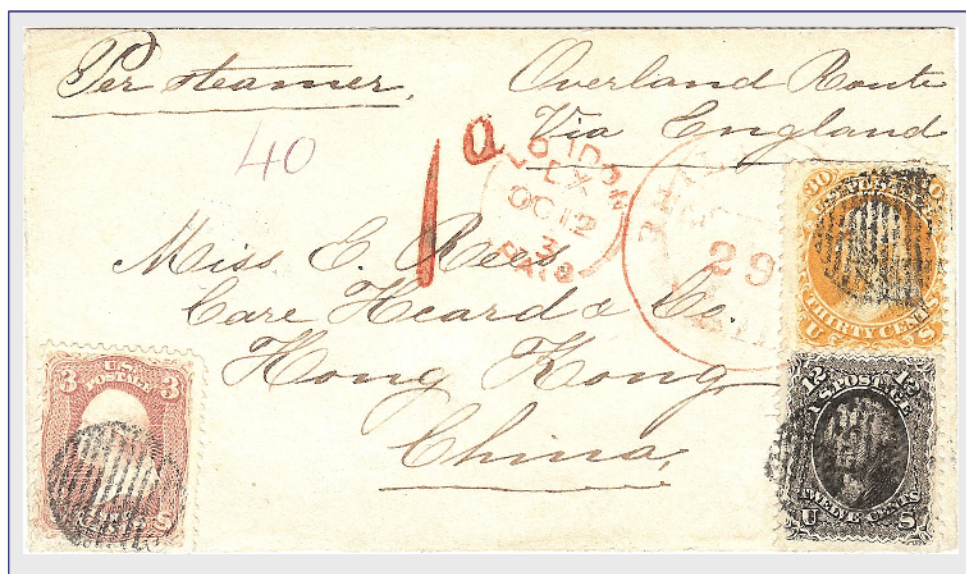 Per steamer,
Overland Route
Via England
40
1 d
LONDON
EX
OC 12
PAID
29
Miss E. Rees
Care Heard & Co.
Hong Kong
China,
30 30
U.S. POSTAGE
THIRTY CENTS
U S
3 3
U.S.
POSTAGE
S
12 12
U.S. POSTAGE
TWELVE CENTS
U S